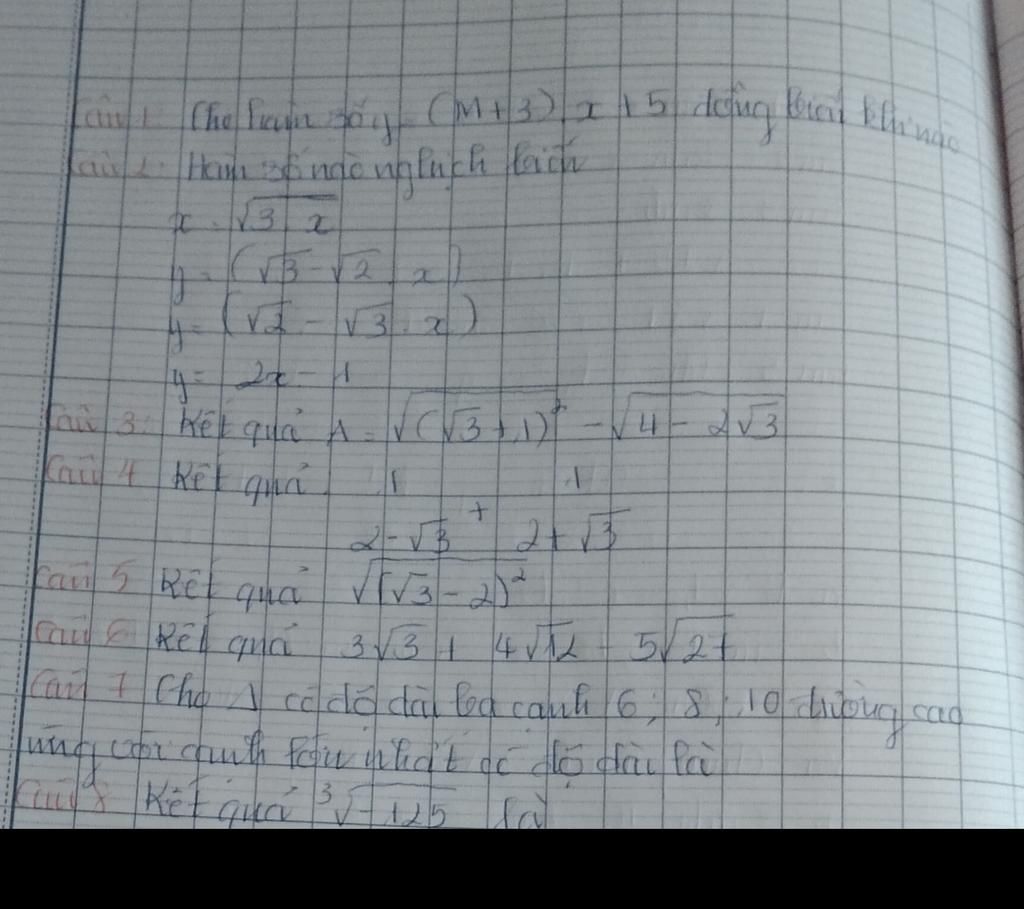 Câu 1: Cho hàm số y = (M+3) x + 5 đồng biến khi nào
Câu 2: Hàm số nào nghịch biến
x = √3 x
y = (√3 - √2 x)
y = (√2 - √3 . x)
y = 2x - 1
Câu 3: Kết quả A = √(√3+1)² - √4 - 2√3
Câu 4 Kết quả 1 1
+
2-√3 2+√3
Câu 5 Kết quả √(√3-2)²
Câu 6 Kết quả 3√3 + 4√12 - 5√27
Câu 7 Cho Δ có độ dài ba cạnh 6; 8; 10 đường cao
ứng với cạnh nhất độ dài là
Câu 8 Kết quả ³√-125 là